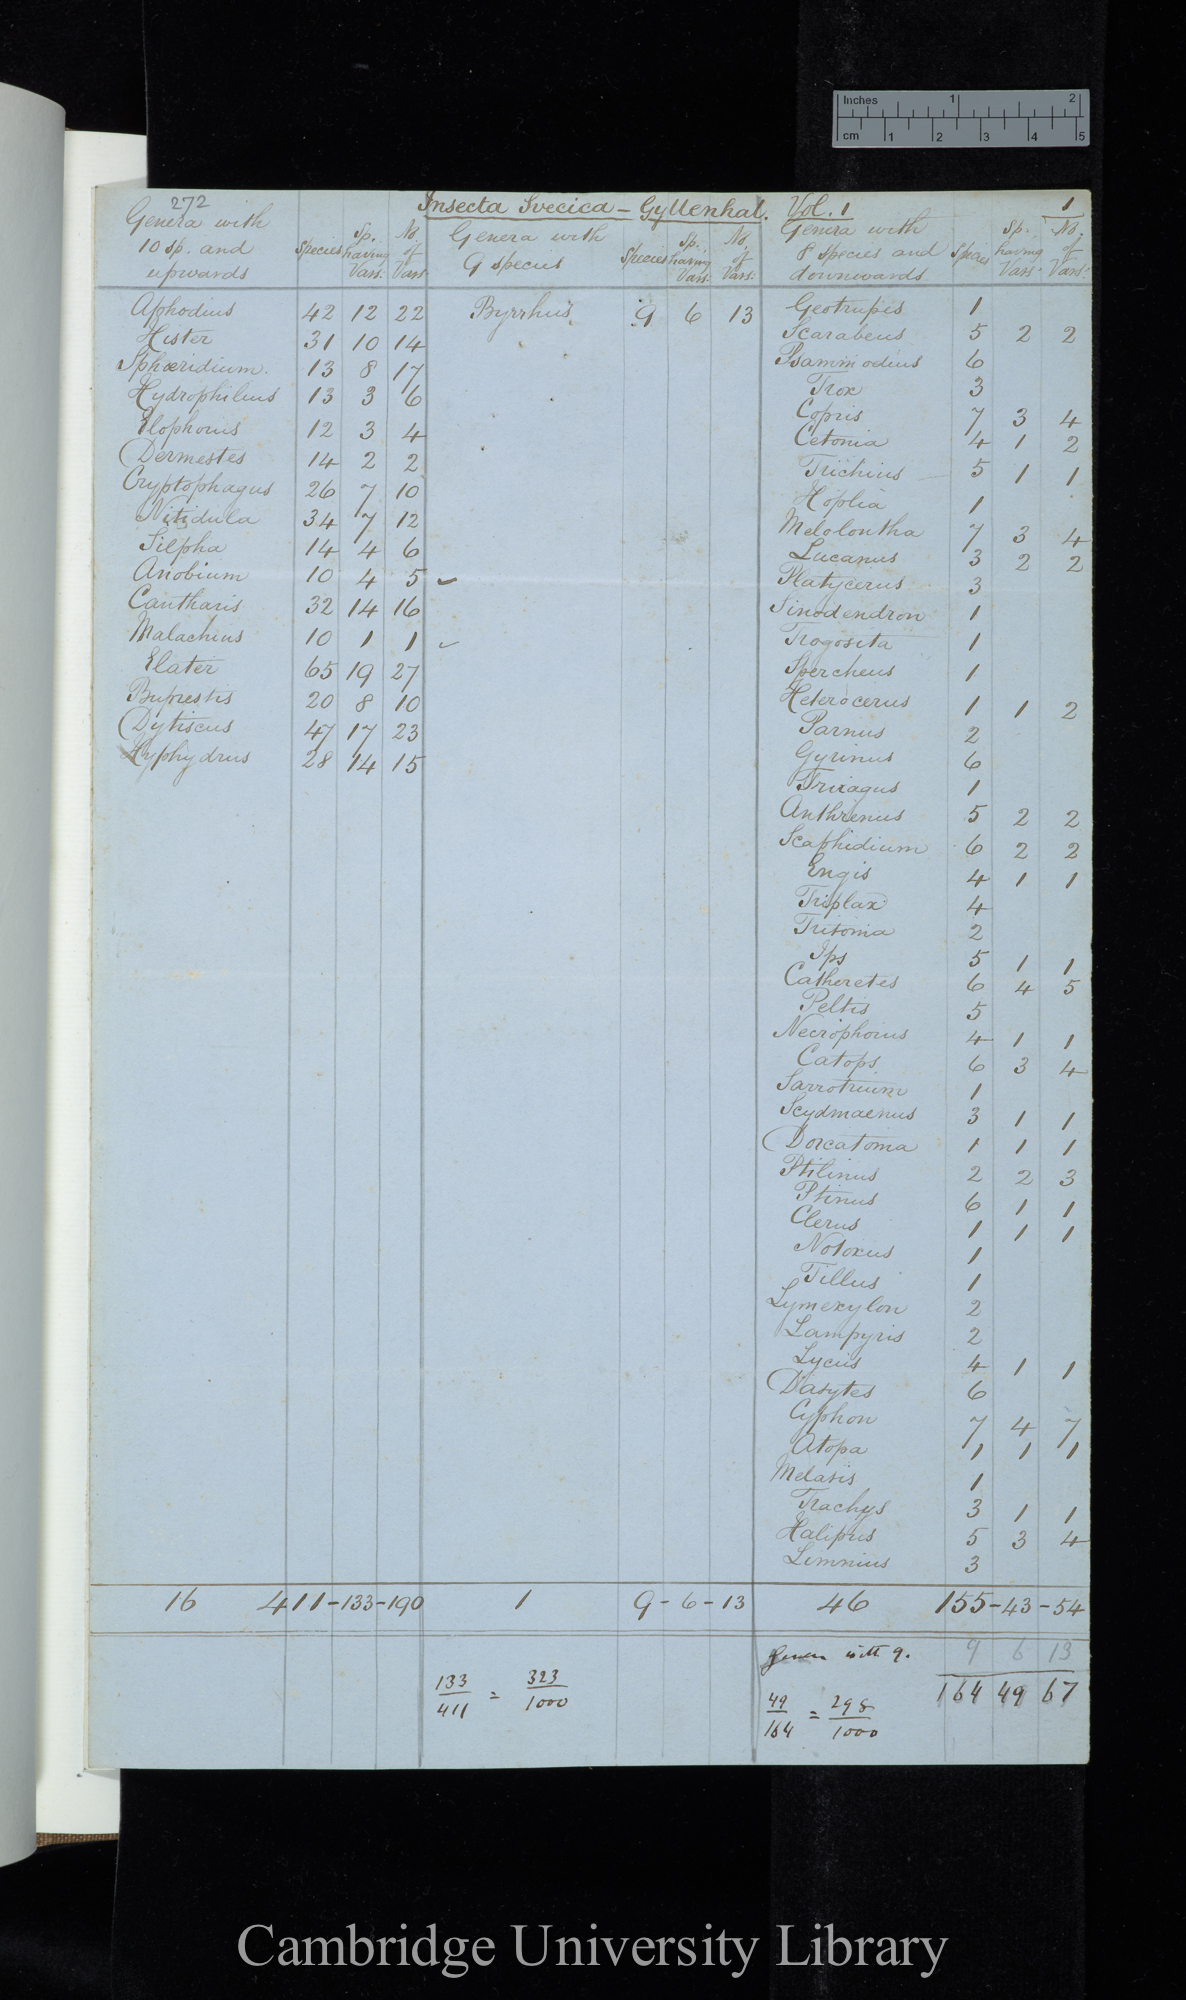 Inches 1 2
cm 1 2 3 4 5
272
Insecta Svecica - Gyllenhal. Vol. 1
1
Genera with 10 sp. and upwards
Species
Sp. having Vars.
No. of Vars.
Aphodius 42 12 22
Hister 31 10 14
Sphæridium. 13 8 17
Hydrophilus 13 3 6
Elophorus 12 3 4
Dermestes 14 2 2
Cryptophagus 26 7 10
Nitidula 34 7 12
Silpha 14 4 6
Anobium 10 4 5 ✓
Cantharis 32 14 16
Malachius 10 1 1 ✓
Elater 65 19 27
Buprestis 20 8 10
Dytiscus 47 17 23
Hyphydrus 28 14 15
16 411-133-190
Genera with 9 species
Species
Sp. having Vars:
No. of Vars:
Byrrhus 9 6 13
1 9-6-13
133/411 = 323/1000
Genera with 8 species and downwards
Species
Sp. having Vars.
No. of Vars:
Geotrupes 1
Scarabeus 5 2 2
Psammodius 6
Trox 3
Copris 7 3 4
Cetonia 4 1 2
Trichius 5 1 1
Hoplia 1
Melolontha 7 3 4
Lucanus 3 2 2
Platycerus 3
Sinodendron 1
Trogosita 1
Spercheus 1
Heterocerus 1 1 2
Parnus 2
Gyrinus 6
Trixagus 1
Anthrenus 5 2 2
Scaphidium 6 2 2
Engis 4 1 1
Triplax 4
Tritoma 2
Ips 5 1 1
Catheretes 6 4 5
Peltis 5
Necrophorus 4 1 1
Catops 6 3 4
Sarrotrium 1
Scydmaenus 3 1 1
Dorcatoma 1 1 1
Ptilinus 2 2 3
Ptinus 6 1 1
Clerus 1 1 1
Notoxus 1
Tillus 1
Lymexylon 2
Lampyris 2
Lycus 4 1 1
Dasytes 6
Cyphon 7 4 7
Atopa 1 1 1
Melasis 1
Trachys 3 1 1
Haliplus 5 3 4
Limnius 3
46 155-43-54
Genera with 9. 9 6 13
164 49 67
49/164 = 298/1000
Cambridge University Library